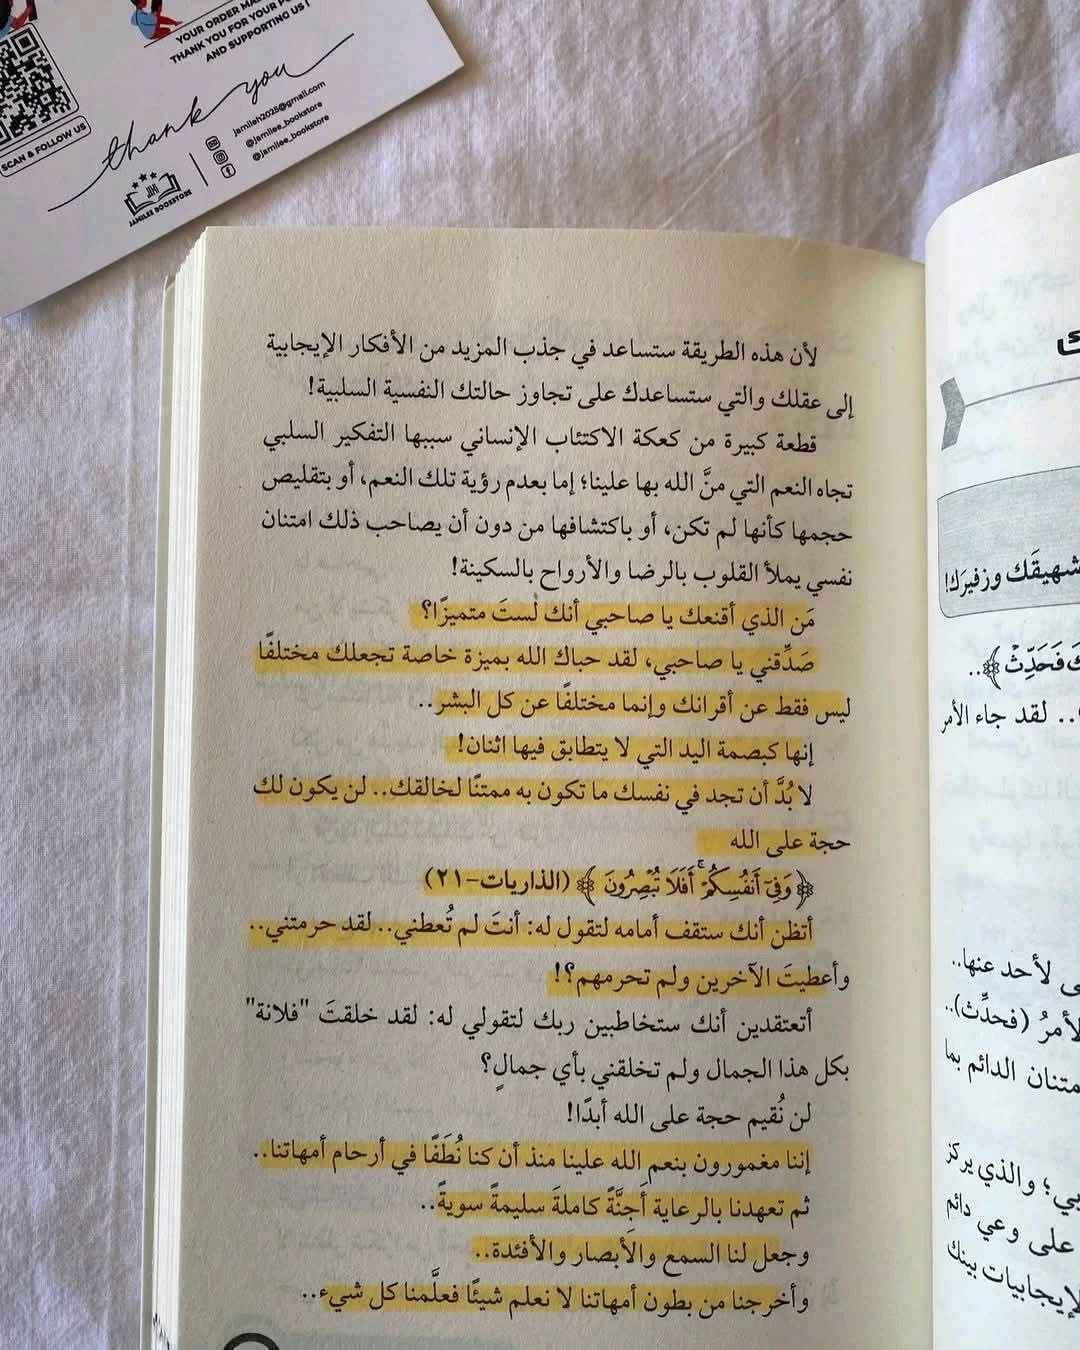 YOUR ORDER MA
THANK YOU FOR YOUR P
AND SUPPORTING US !
thank you
SCAN & FOLLOW US
jamileh2025@gmail.com
@jamilee_bookstore
@jamilee_bookstore
JAMILEE BOOKSTORE
لأن هذه الطريقة ستساعد في جذب المزيد من الأفكار الإيجابية
إلى عقلك والتي ستساعدك على تجاوز حالتك النفسية السلبية!
قطعة كبيرة من كعكة الاكتئاب الإنساني سببها التفكير السلبي
تجاه النعم التي منَّ الله بها علينا؛ إما بعدم رؤية تلك النعم، أو بتقليص
حجمها كأنها لم تكن، أو باكتشافها من دون أن يصاحب ذلك امتنان
نفسي يملأ القلوب بالرضا والأرواح بالسكينة!
مَن الذي أقنعك يا صاحبي أنك لستَ متميزًا؟
صَدِّقني يا صاحبي، لقد حباك الله بميزة خاصة تجعلك مختلفًا
ليس فقط عن أقرانك وإنما مختلفًا عن كل البشر..
إنها كبصمة اليد التي لا يتطابق فيها اثنان!
لا بُدَّ أن تجد في نفسك ما تكون به ممتنًا لخالقك.. لن يكون لك
حجة على الله
﴿وَفِىٓ أَنفُسِكُمْ ۚ أَفَلَا تُبْصِرُونَ﴾ (الذاريات-٢١)
أتظن أنك ستقف أمامه لتقول له: أنتَ لم تُعطني.. لقد حرمتني..
وأعطيتَ الآخرين ولم تحرمهم؟!
أتعتقدين أنك ستخاطبين ربك لتقولي له: لقد خلقتَ "فلانة"
بكل هذا الجمال ولم تخلقني بأي جمالٍ؟
لن نُقيم حجة على الله أبدًا!
إننا مغمورون بنعم الله علينا منذ أن كنا نُطَفًا في أرحام أمهاتنا..
ثم تعهدنا بالرعاية أَجنَّةً كاملةَ سليمةً سويةً..
وجعل لنا السمع والأبصار والأفئدة..
وأخرجنا من بطون أمهاتنا لا نعلم شيئًا فعلَّمنا كل شيء..
شهيقَك وزفيرَك!
فَحَدِّثْ﴾..
.. لقد جاء الأمر
لأحد عنها..
الأمرُ (فحدِّث)..
الدائم بما
؛ والذي يركز
على وعي دائم
بينك